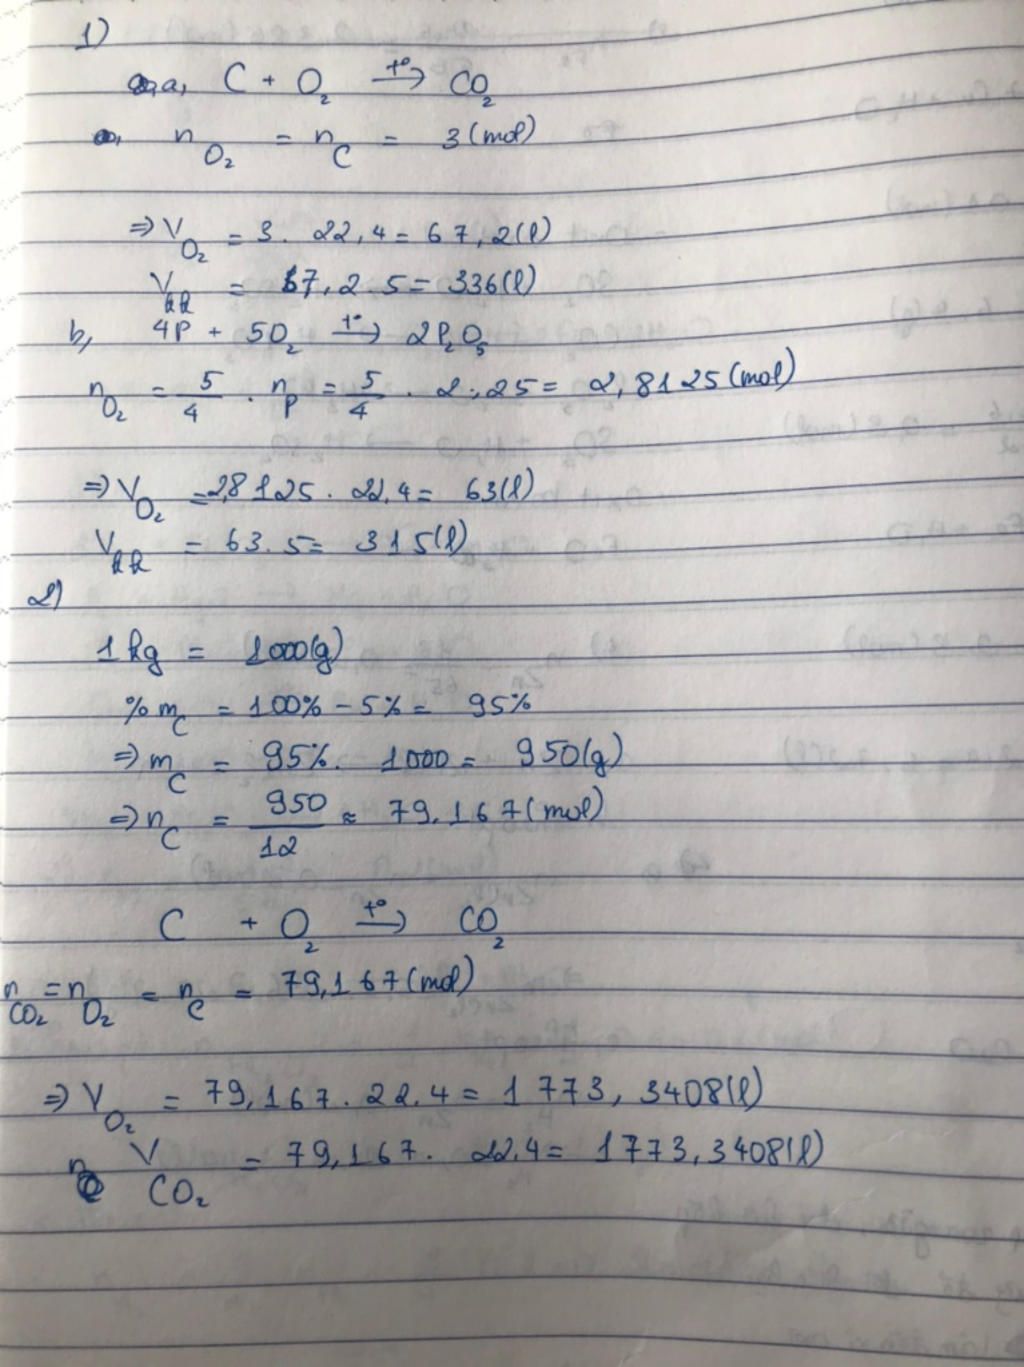 1)
a, C + O₂ →(t°) CO₂
n_O₂ = n_C = 3 (mol)
⇒ V_O₂ = 3. 22,4 = 67,2(l)
V_kk = 67,2 5 = 336(l)
b, 4P + 5O₂ →(t°) 2P₂O₅
n_O₂ = 5/4 . n_P = 5/4 . 2,25 = 2,8125 (mol)
⇒ V_O₂ = 2,8125 . 22,4 = 63(l)
V_kk = 63.5 = 315(l)
2)
1 kg = 1000(g)
%m_C = 100% - 5% = 95%
⇒ m_C = 95%. 1000 = 950(g)
⇒ n_C = 950/12 ≈ 79,167 (mol)
C + O₂ →(t°) CO₂
n_CO₂ = n_O₂ = n_C = 79,167 (mol)
⇒ V_O₂ = 79,167. 22,4 = 1773,3408(l)
V_CO₂ = 79,167. 22,4 = 1773,3408(l)